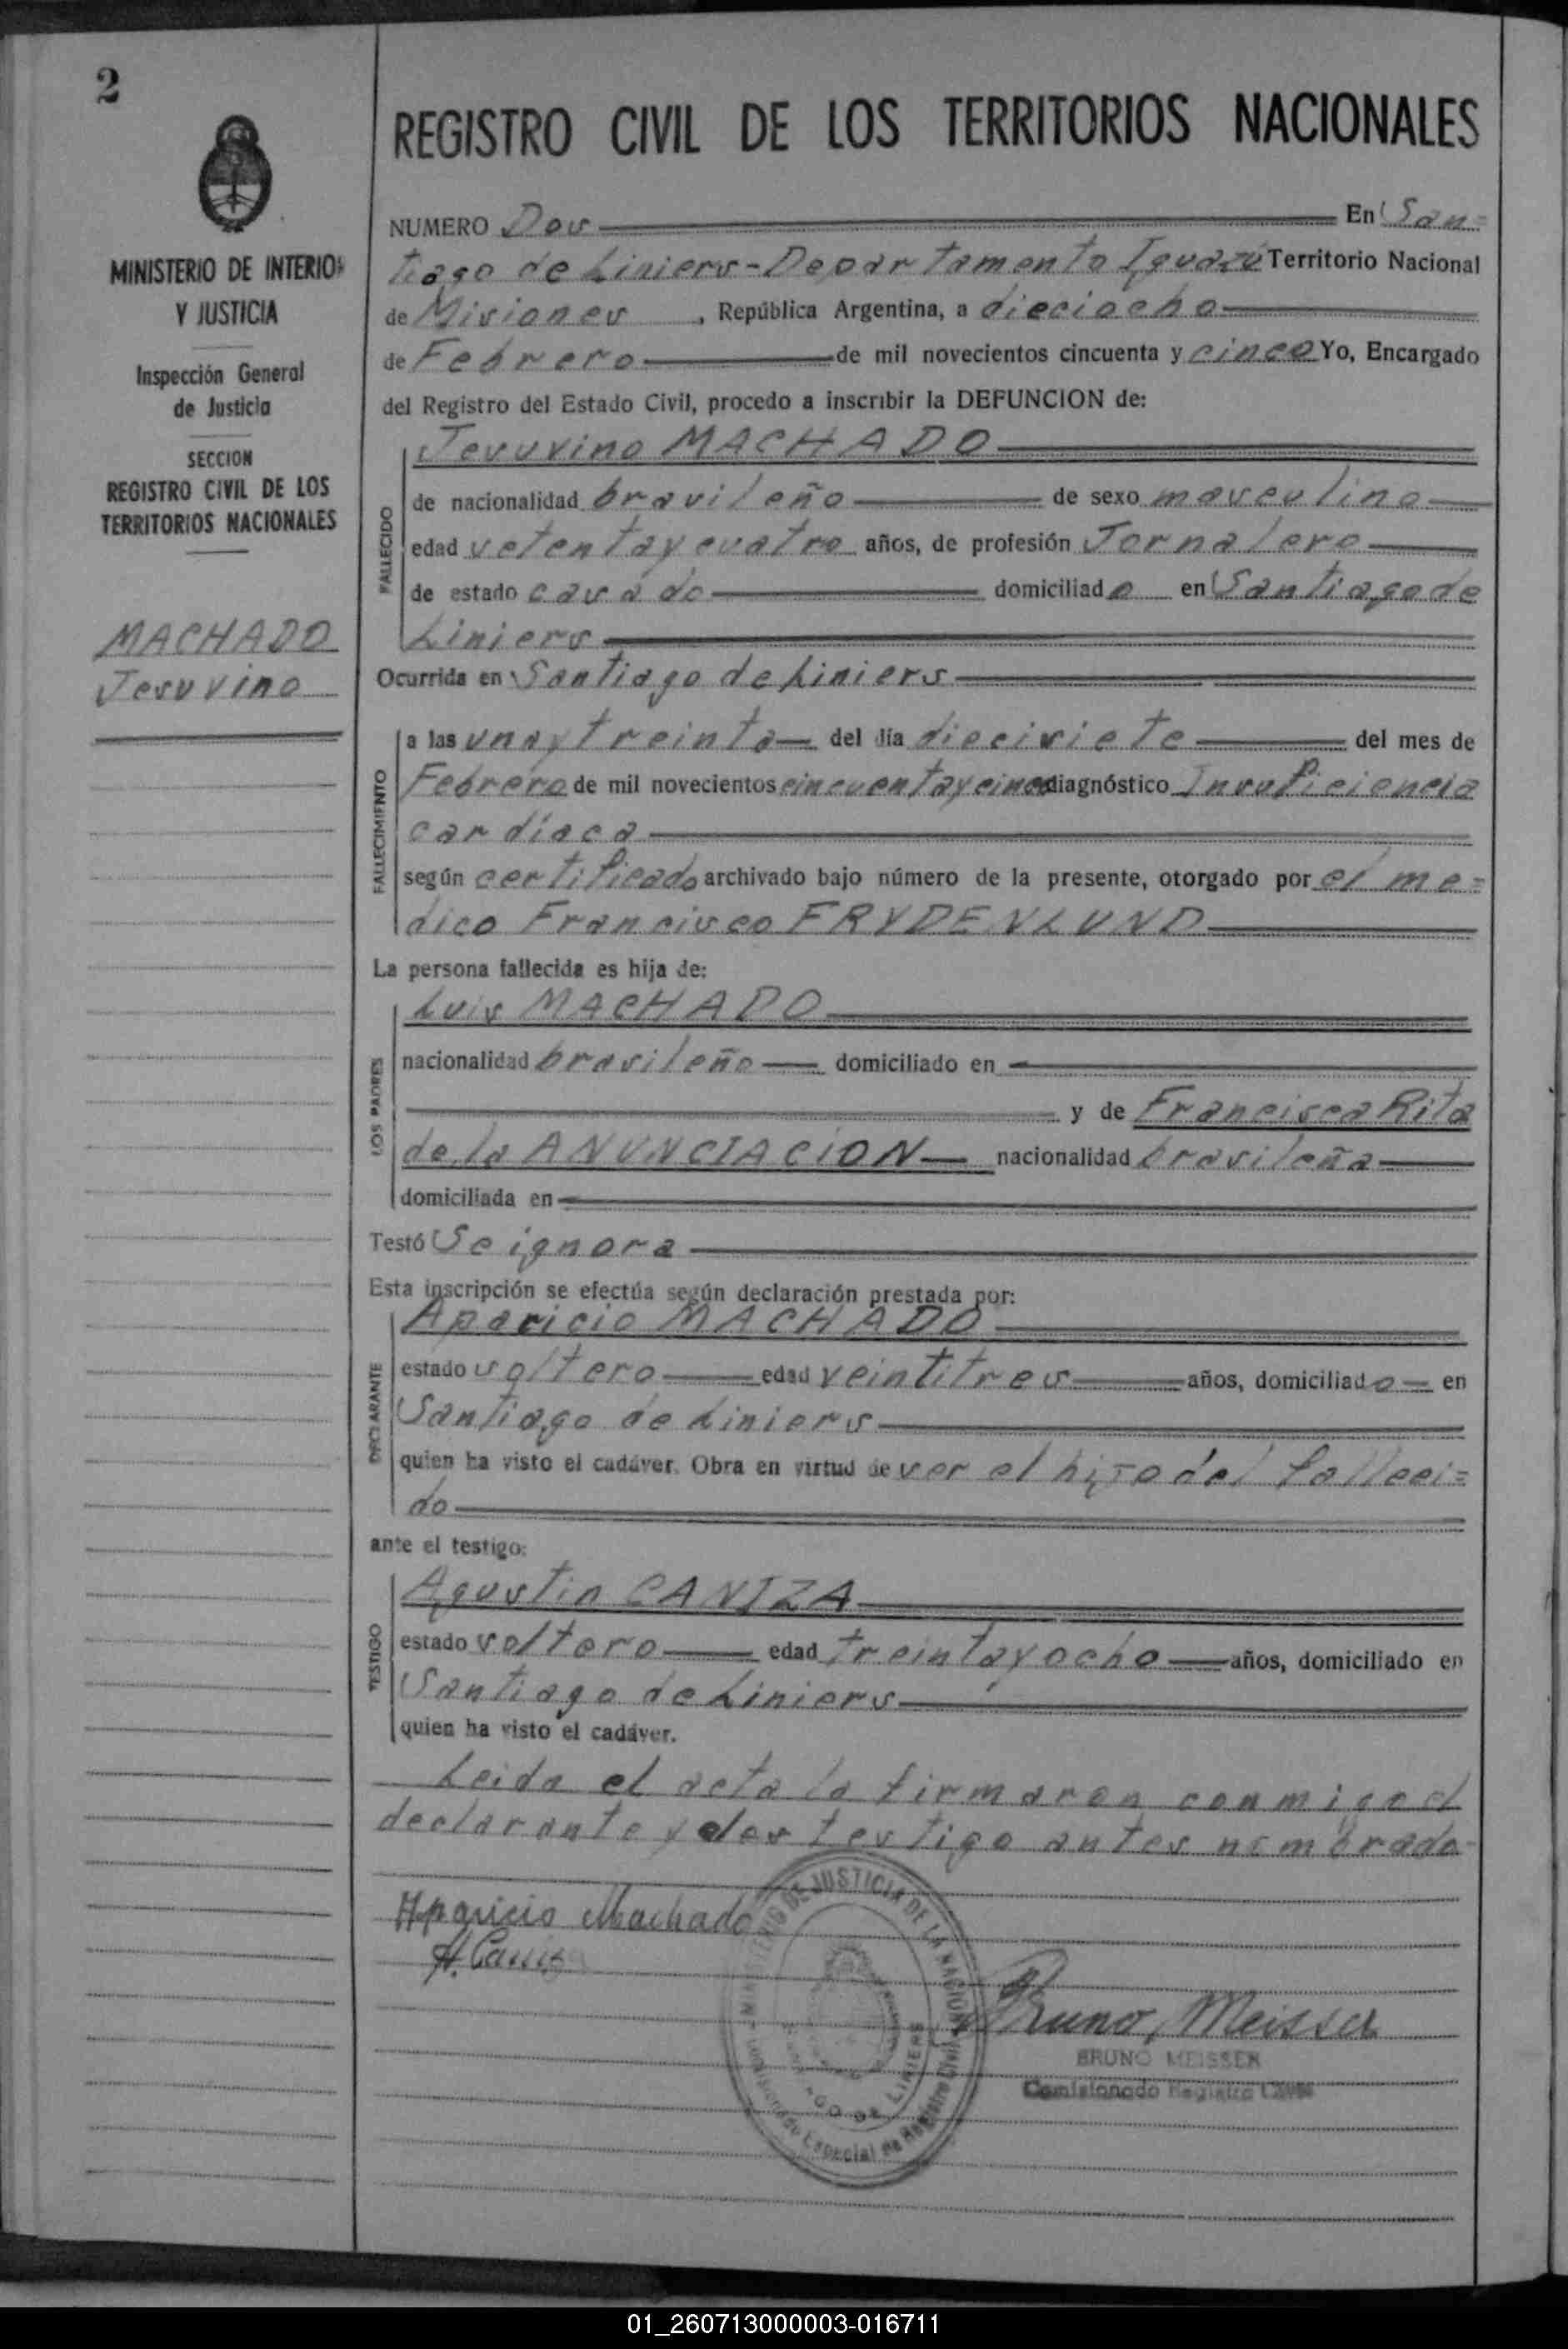 2
REGISTRO CIVIL DE LOS TERRITORIOS NACIONALES
MINISTERIO DE INTERIOR
Y JUSTICIA
Inspección General
de Justicia
SECCION
REGISTRO CIVIL DE LOS
TERRITORIOS NACIONALES
MACHADO
Jesuvino
NUMERO Dos En San=
tiago de Liniers - Departamento Iguazú Territorio Nacional
de Misiones , República Argentina, a dieciocho
de Febrero de mil novecientos cincuenta y cinco Yo, Encargado
del Registro del Estado Civil, procedo a inscribir la DEFUNCION de:
FALLECIDO
Jesuvino MACHADO
de nacionalidad brasileño de sexo masculino
edad setentaycuatro años, de profesión Jornalero
de estado casado domiciliado en Santiago de
Liniers
Ocurrida en Santiago de Liniers
FALLECIMIENTO
a las unaytreinta del día diecisiete del mes de
Febrero de mil novecientos cincuentaycinco diagnóstico Insuficiencia
cardíaca
según certificado archivado bajo número de la presente, otorgado por el me=
dico Francisco FRYDENLUND
La persona fallecida es hija de:
LOS PADRES
Luis MACHADO
nacionalidad brasileño domiciliado en
y de Francisca Rita
de la ANUNCIACION nacionalidad brasileña
domiciliada en
Testó Se ignora
Esta inscripción se efectúa según declaración prestada por:
DECLARANTE
Aparicio MACHADO
estado soltero edad veintitres años, domiciliado en
Santiago de Liniers
quien ha visto el cadáver. Obra en virtud de ser el hijo del falleci=
do
ante el testigo:
TESTIGO
Agustin CANIZA
estado soltero edad treintayocho años, domiciliado en
Santiago de Liniers
quien ha visto el cadáver.
Leida el acta la firmaron conmigo el
declarante y el testigo antes nombrado
Aparicio Machado
A. Caniza
MINISTERIO DE JUSTICIA DE LA NACION
Comisionado Especial de Registro Civil
GO DE LINIERS
Bruno Meisser
BRUNO MEISSER
Comisionado Registro Civil
01_260713000003-016711